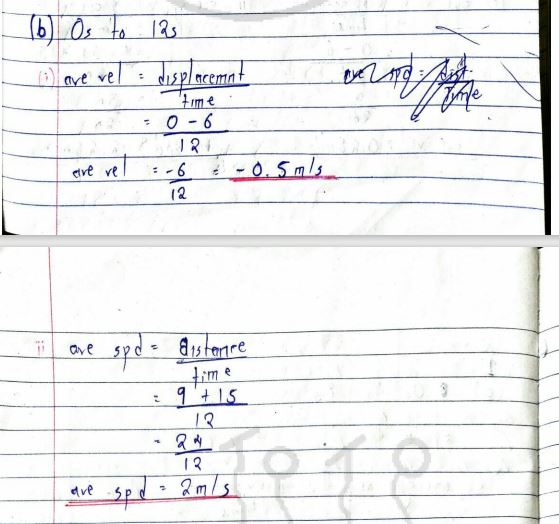 (b) 0s to 12s
(i) ave vel = displacemnt
time
= 0 - 6
12
ave vel = -6 = -0.5 m/s
12
ave spd = dist.
Time
ii ave spd = distance
time
= 9 + 15
12
= 24
12
ave spd = 2 m/s